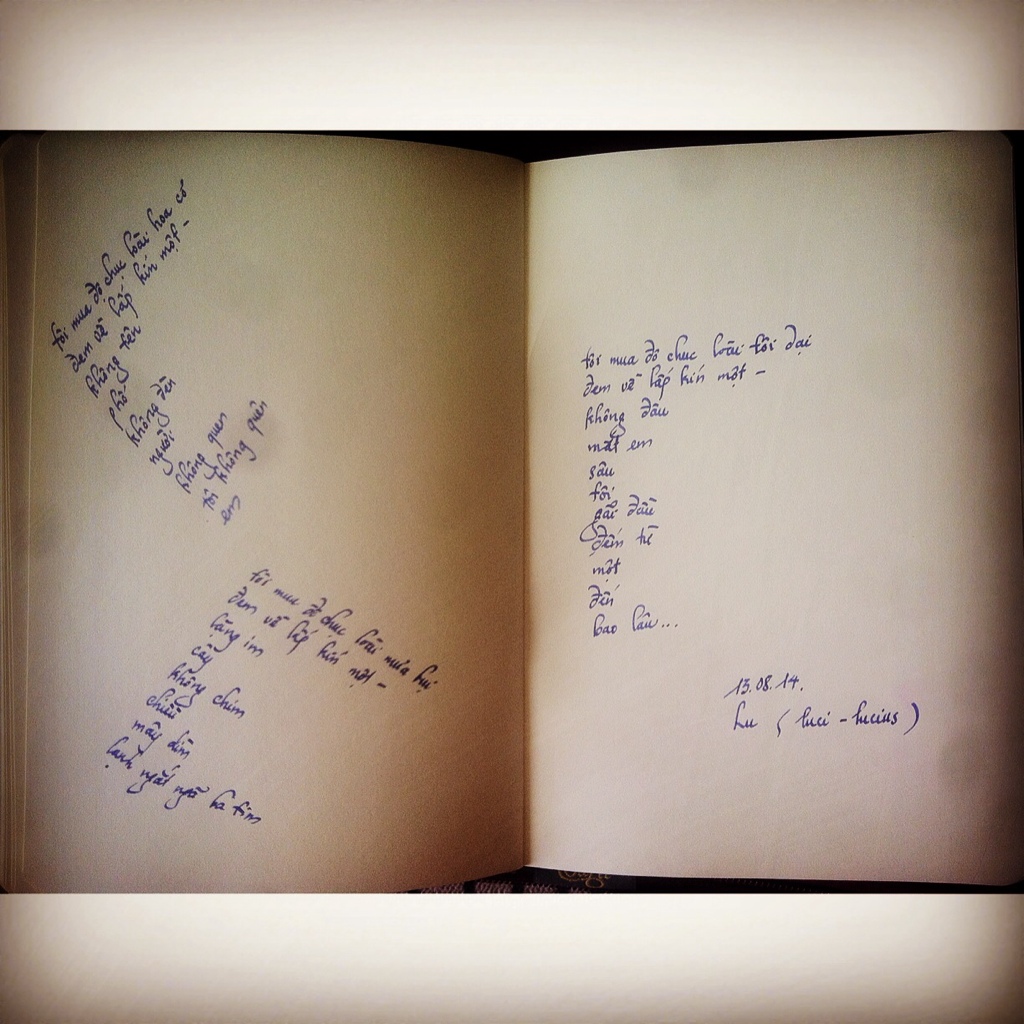 tôi mua độ chục loài hoa cỏ
đem về lấp kín một -
không tên
phố
không đèn
người
không quen
tôi không quên
em
tôi mua độ chục loài mưa bụi
đem về lấp kín một -
lặng im
cây
không chim
chiều
mây dìm
lạnh ngắt ngã ba tim
tôi mua độ chục loài tôi dại
đem về lấp kín một -
không đâu
mắt em
sâu
tôi
gối đầu
đếm từ
một
đến
bao lâu...
13.08.14.
Lu (luci - lucius)